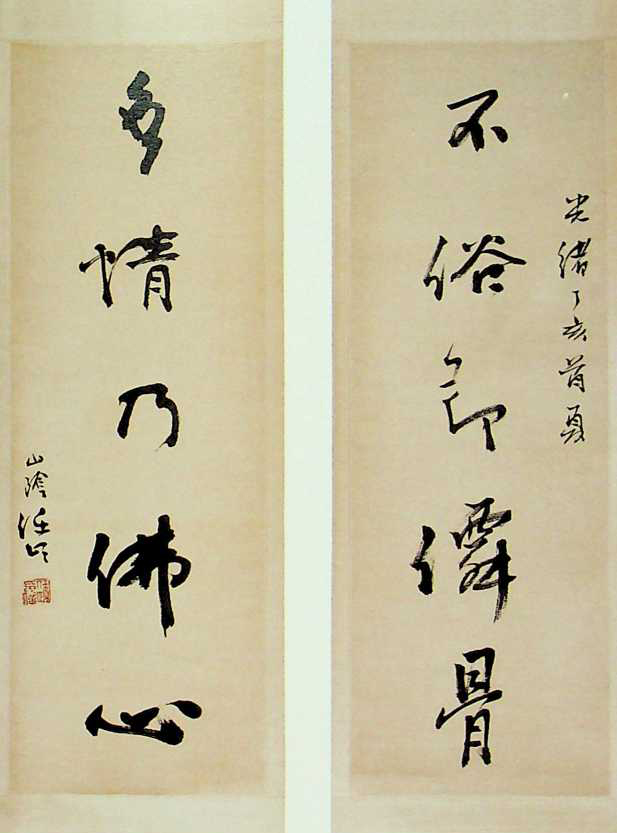 光緒丁亥首夏
不俗即僊骨
多情乃佛心
山陰任頤